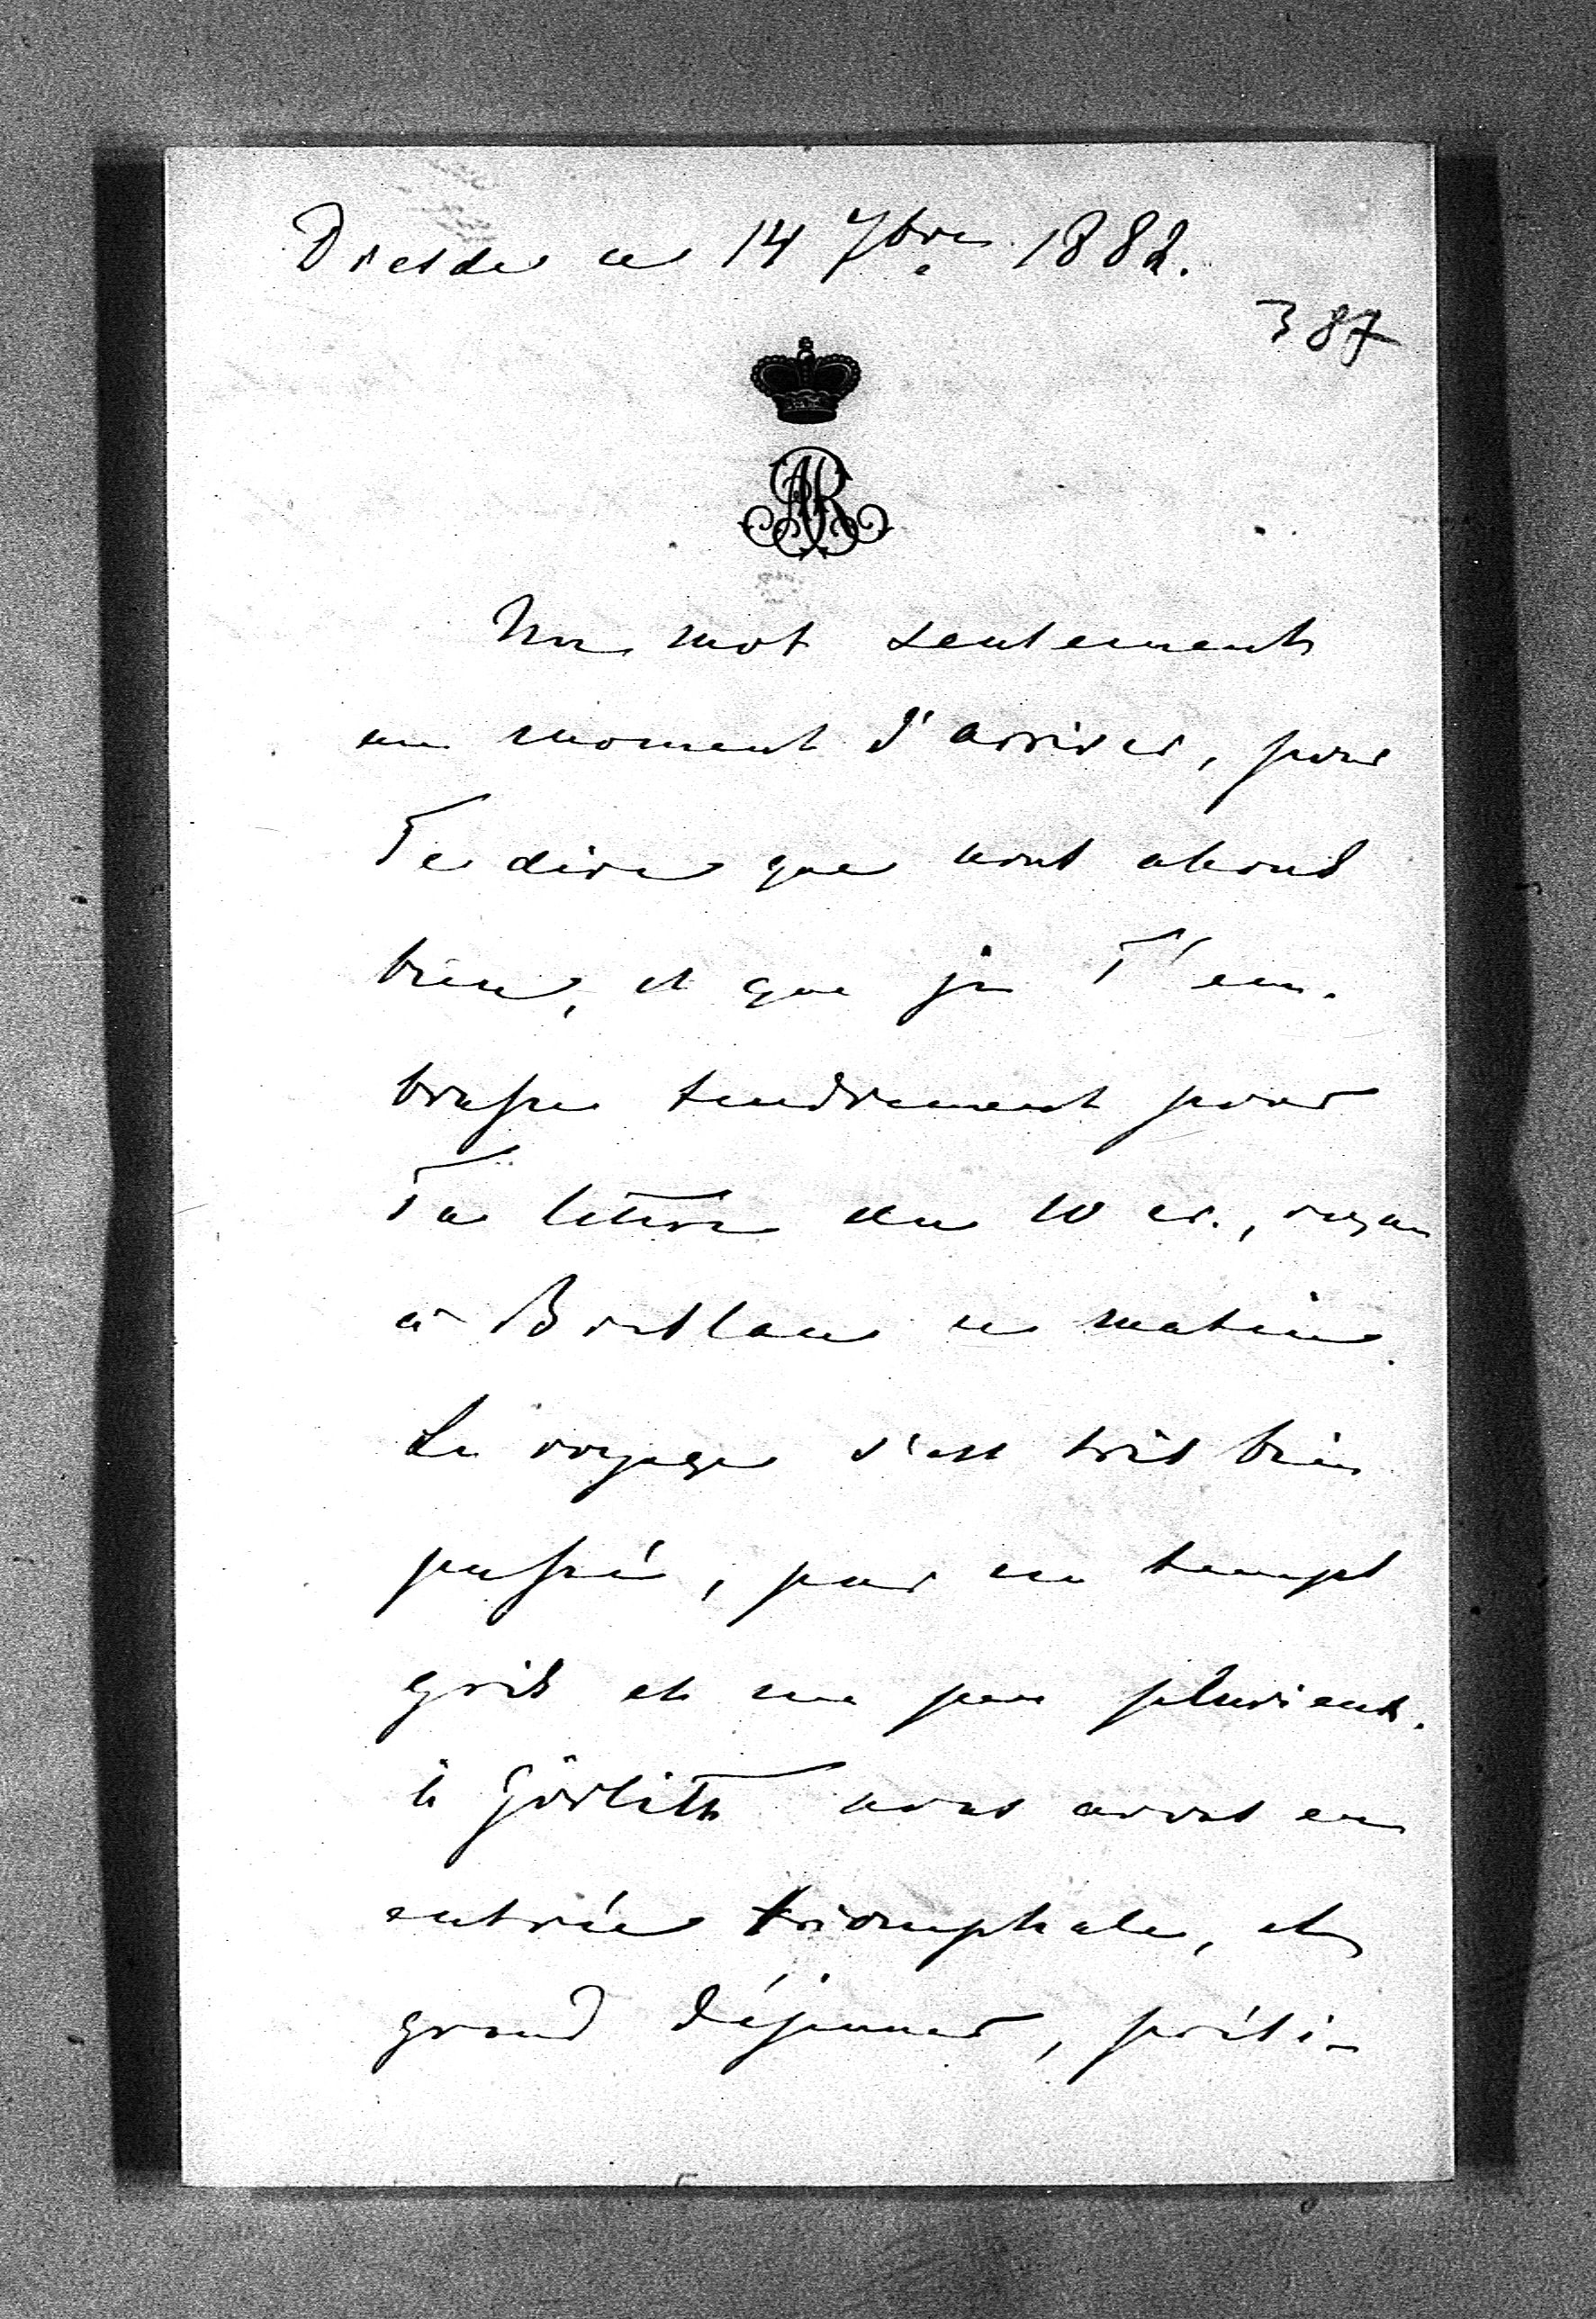 Dresde ce 14 7bre 1882.
387
AR
Un mot seulement
au moment d'arriver, pour
Te dire que nous allons
bien, et que je T'em-
brasse tendrement pour
Ta lettre du 10 cr., reçue
à Breslau ce matin.
Le voyage s'est très bien
passé, par un temps
gris et un peu pluvieux.
à Görlitz nous avons eu
entrée triomphale, et
grand déjeuner, prési-